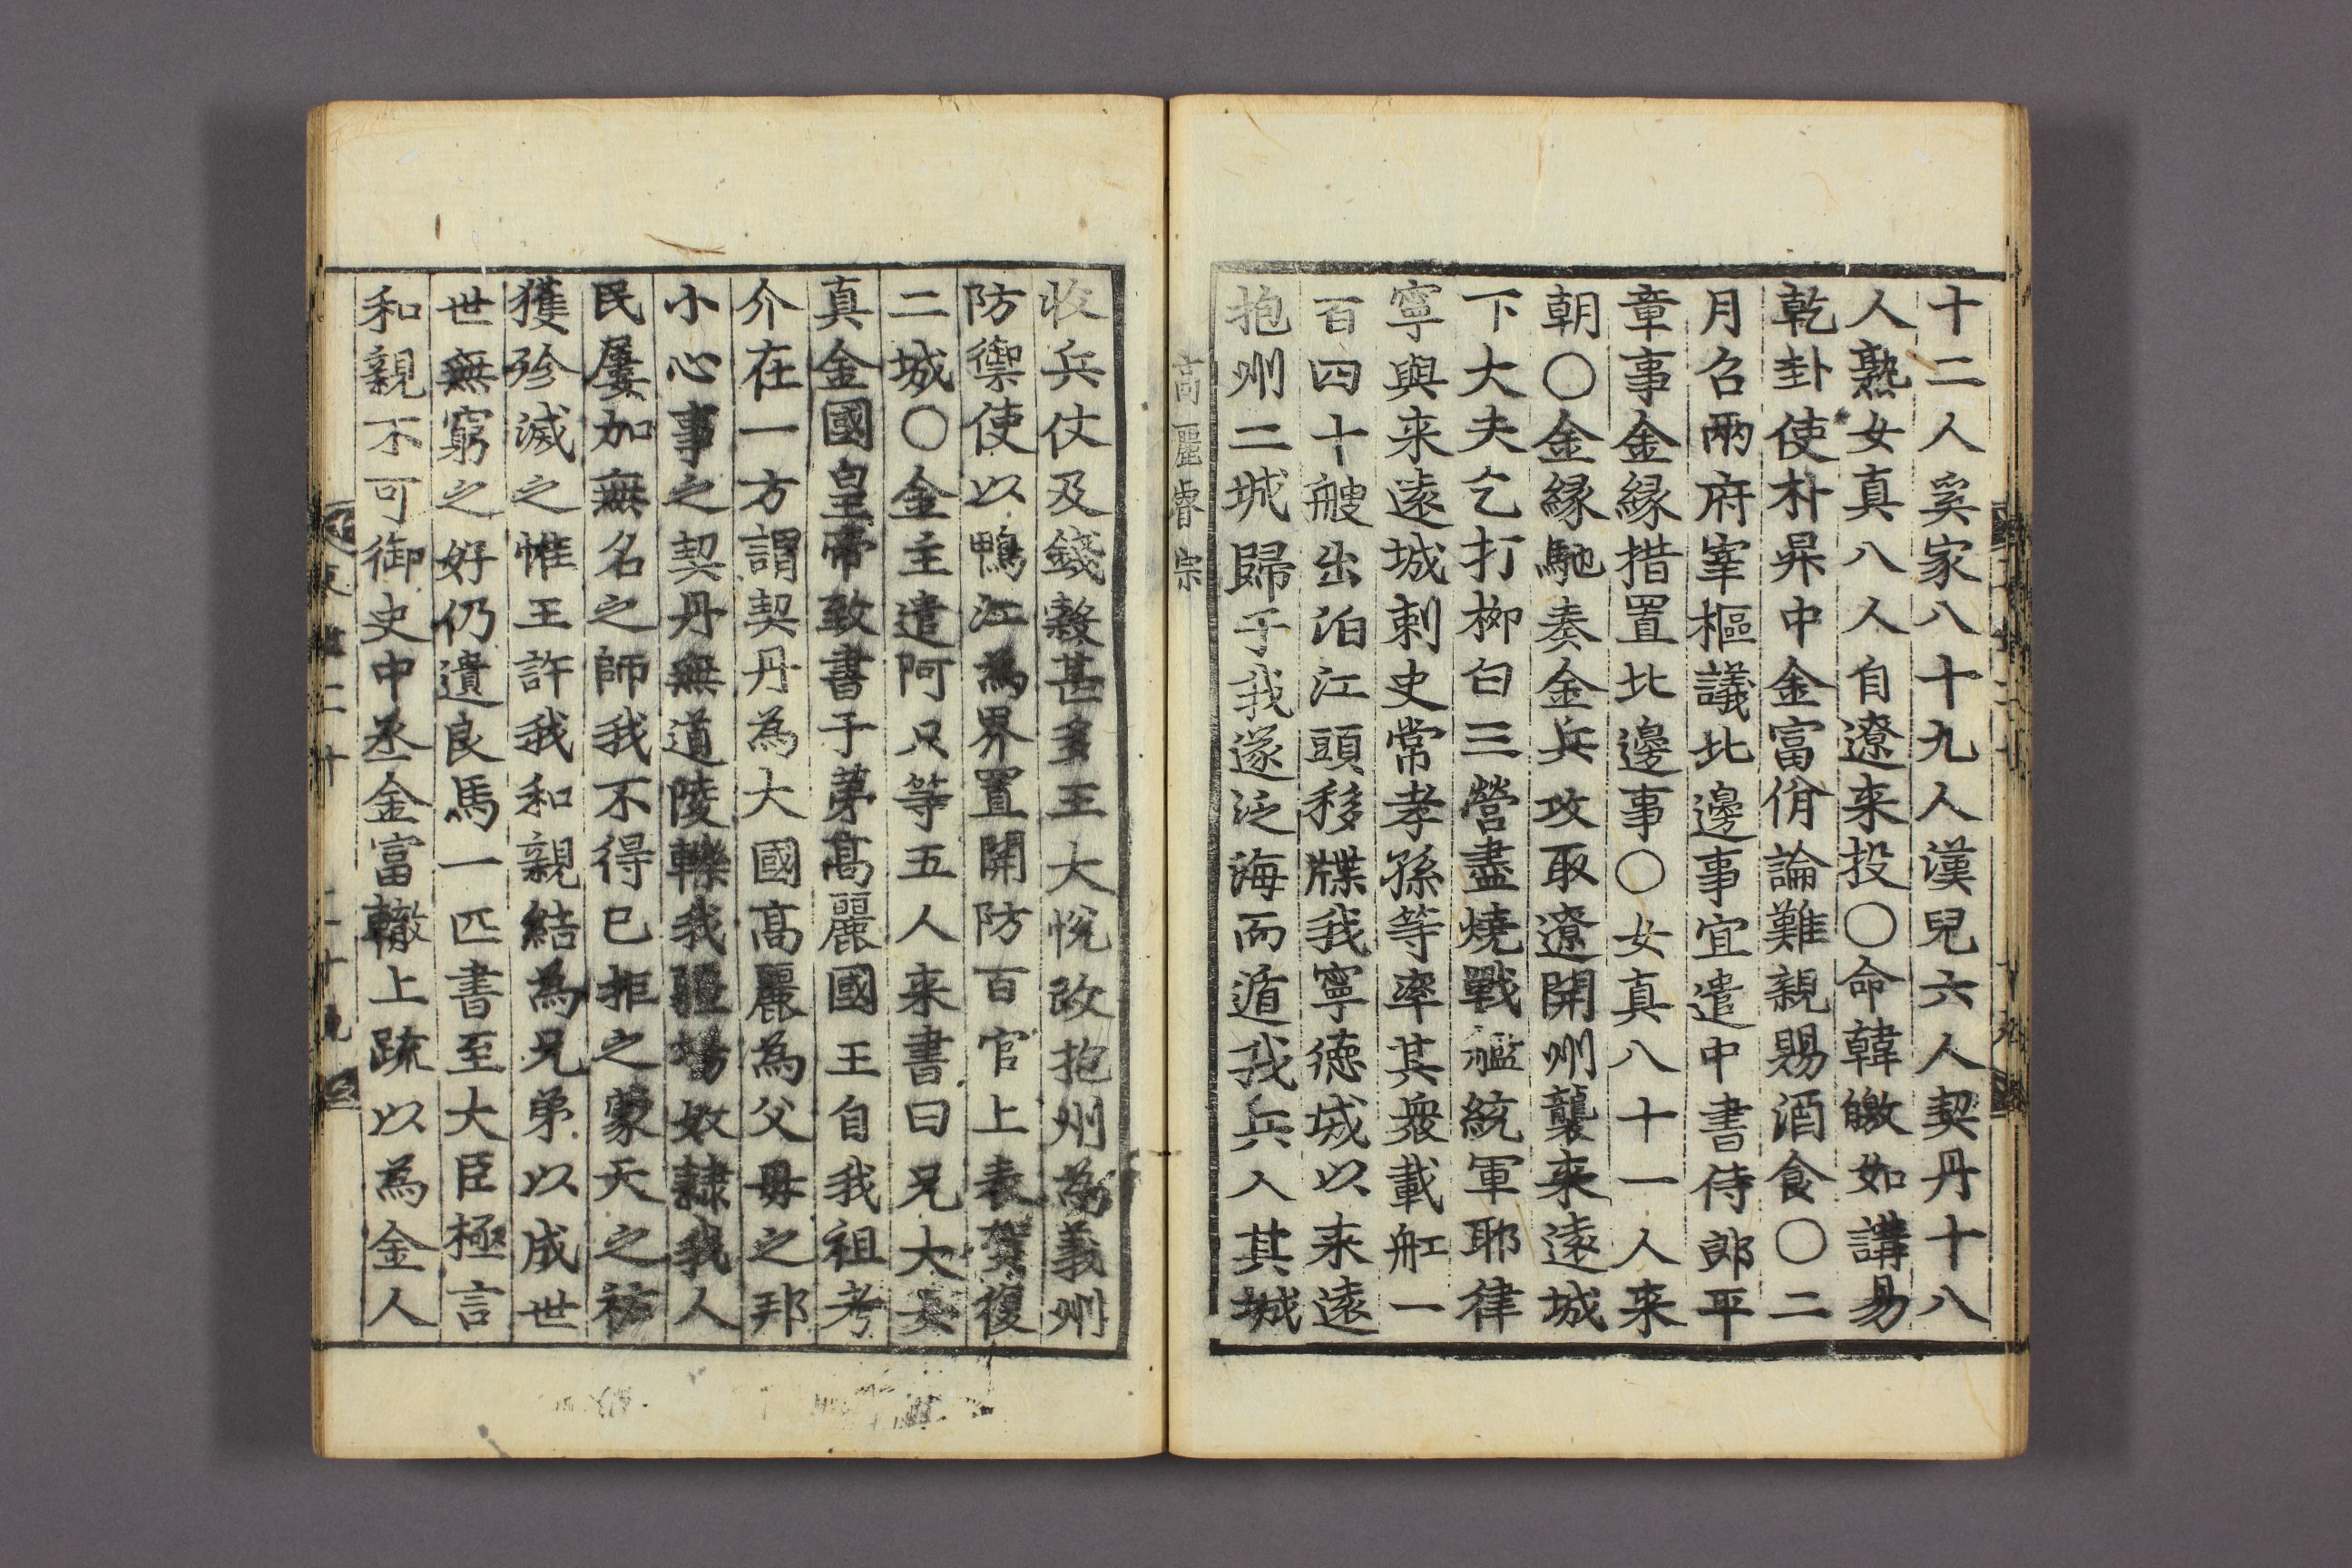 十二人奚家八十九人漢兒六人契丹十八
人熟女真八人自遼来投〇命韓皦如講易
乾卦使朴昇中金富佾論難親賜酒食〇二
月召兩府宰樞議北邊事宜遣中書侍郎平
章事金緣措置北邊事〇女真八十一人来
朝〇金緣馳奏金兵攻取遼開州襲来逺城
下大夫乞打栁白三營盡燒戰艦統軍耶律
寧與来逺城刺史常孝孫等率其衆載舡一
百四十艘出泊江頭移牒我寧徳城以来逺
抱州二城歸于我遂泛海而遁我兵入其城
高麗睿宗
收兵仗及錢糓甚多王大悅改抱州為義州
防禦使以鴨江為界置開防百官上表賀復
二城〇金主遣阿只等五人来書曰兄大女
真金國皇帝致書于弟髙麗國王自我祖考
介在一方謂契丹為大國髙麗為父母之邦
小心事之契丹無道陵轢我疆埸奴隷我人
民屢加無名之師我不得已拒之蒙天之祐
獲殄滅之惟王許我和親結為兄弟以成世
世無窮之好仍遺良馬一匹書至大臣極言
和親不可御史中丞金富轍上疏以為金人